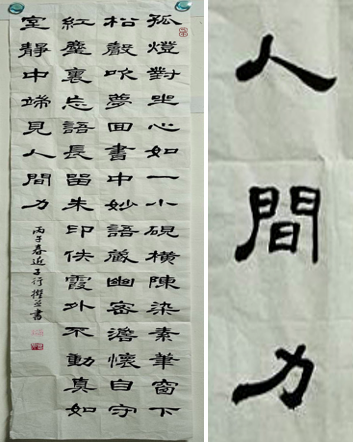 孤燈對坐心如一小硯橫陳染素筆窗下
松聲吹夢回書中妙語藏幽密澹懷自守
紅塵裏忘語長留朱印佚霞外不動真如
室靜中端見人間力
丙午春近子行撰並書
人間力